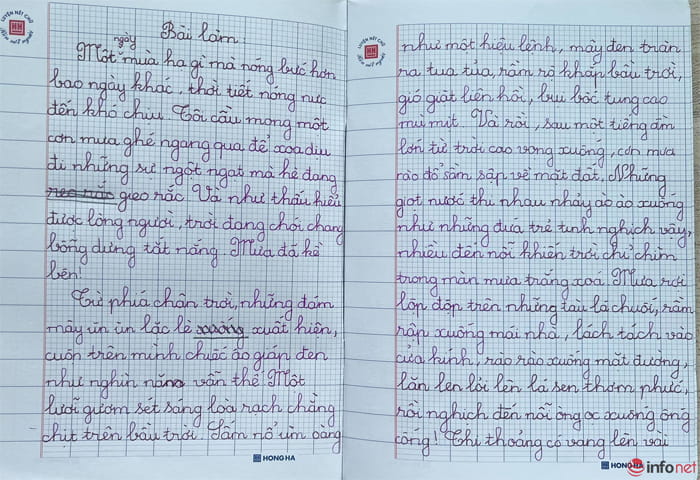 LUYỆN NÉT CHỮ
RÈN NẾT NGƯỜI
HH
Bài làm:
ngày
Một mùa hạ gì mà nóng bức hơn
bao ngày khác, thời tiết nóng nực
đến khó chịu. Tôi cầu mong một
cơn mưa ghé ngang qua để xoa dịu
đi những sự ngột ngạt mà hè đang
gieo rắc. Và như thấu hiểu
được lòng người, trời đang chói chang
bỗng dưng tắt nắng. Mưa đã kề
bên!
Từ phía chân trời, những đám
mây ùn ùn lắc lẻ xuống xuất hiện,
cuốn trên mình chiếc áo gián đen
như nghìn năm vẫn thế. Một
lưỡi gươm sét sáng lòa rạch chằng
chịt trên bầu trời. Sấm nổ ùn oàng
HONG HA
LUYỆN NÉT CHỮ
RÈN NẾT NGƯỜI
HH
như một hiệu lệnh, mây đen tràn
ra tua tủa, rầm rộ khắp bầu trời,
gió giật liên hồi, bụi bốc tung cao
mù mịt. Và rồi, sau một tiếng ầm
lớn từ trời cao vọng xuống, cơn mưa
rào đổ sầm sập về mặt đất. Những
giọt nước thi nhau nhảy ào ào xuống
như những đứa trẻ tinh nghịch vậy,
nhiều đến nỗi khiến trời chỉ chìm
trong màn mưa trắng xoá. Mưa rơi
lộp độp trên những tàu lá chuối, rầm
rập xuống mái nhà, lách tách vào
cửa kính, rào rào xuống mặt đường,
lăn len lỏi lên lá sen thơm phức,
rồi nghịch đến nỗi ồng ọc xuống ống
cống! Thi thoảng có vang lên vài
HONG HA
infonet